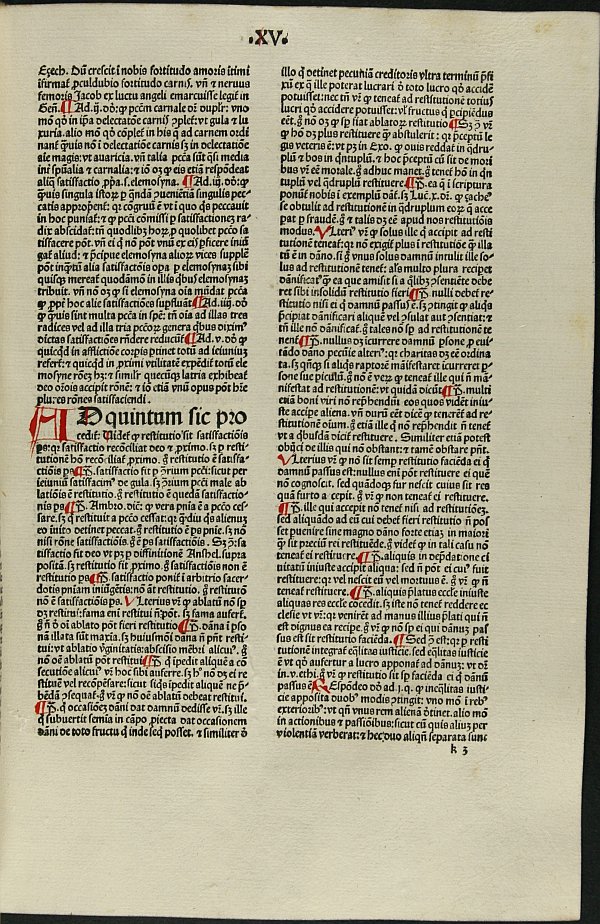 ·XV·
Ezech. Dũ crescit ĩ nobis fortitudo amoris ĩtimi
ĩfirmaẗ ꝓculdubio fortitudo carniſ. vñ ⁊ neruus
femoris Jacob ex luctu angeli emarcuisse legiẗ in
Geñ. ¶ Ad .ij. dõ: ꝙ pccm̃ carnale dr̃ duplr̃: vno
mõ qd̓ in ip̃a delectatõe carniſ ↄpleẗ: vt gula ⁊ lu
xuria. alio mõ qd̓ cõpleẗ in his q̃ ad carnem ordi
ale magis: vt auaricia. vñ talia pctã sũt q̃si media
int̓ sp̃ualia ⁊ carnalia: ⁊ iõ oꝫ ꝙ eis etiã respõdeat
aliq̃ satisfactio ꝓp̃a .ſ. elemosyna. ¶ Ad .iij. dõ: ꝙ
q̃uis singula istoꝝ
in hoc puniaẗ: ⁊ ꝙ pctĩ cõmissi p satisfactionez ra
dix abscidaẗ: tñ quodlibꝫ hoꝝ p quolibet pctõ sa
tisfacere põt.
gaẗ aliud: ⁊ p̃cipue elemosyna alioꝝ vices supplẽ
põt inq̃tũ alia satisfactõis opa p elemosynaz sibi
quisqꝫ mereaẗ quodãmõ in illis q̃bus elemosynaz
tribuit. vñ nõ oꝫ ꝙ si elemosyna oia mũdat pctã
ꝙ ꝓpt̓ hoc alie satisfactões supfluãt ¶ Ad .iiij. dõ
ꝙ q̃uis sint multa pctã in spẽ: tñ oia ad illas tres
radices vel ad illa tria pctõꝝ genera q̃bus dixim᷒
dictas satisfactões rñdere reducũẗ ¶ Ad .v. dõ ꝙ
quicqd̓ in afflictiõe corpis ptinet totũ ad ieiuniuz
referẗ: ⁊ quicqd̓ in ꝓximi vtilitatẽ expẽdiẗ totũ ele
mosyne rõeꝫ hꝫ: ⁊ simil̓r quecũqꝫ latria exhibeaẗ
deo orõis accipit rõnẽ: ⁊ iõ etiã vnũ opus põt hr̃e
plures rõnes satisfaciendi.
AD quintum sic pro
cediẗ: Videẗ ꝙ restitutio sit satisfactiõis
ps: qꝛ satisfactio recõciliat deo ⁊ ꝓximo. sꝫ p resti
tutionẽ hõ recõciliaẗ ꝓximo. g̊ restitutio ẽ satisfa-
ctiõis ps ¶ P̃. satisfactio fit p ↄ̃rium pctĩ: sicut per
ieiuniũ satisfacim᷒ de gula. sꝫ ↄ̃rium pctĩ male ab
lationis ẽ restitutio. g̊ restitutio ẽ quedã satisfactio-
nis ps ¶ P̃. Ambro. dic̃: ꝙ vera pñia ẽ a pctõ ces-
sare. sꝫ q̃ restituit a pctõ cessat: qꝛ q̃diu q̃s alienuz
eo ĩuito detinet peccat. g̊ restitutio ẽ ps pñie. sꝫ nõ
nisi rõne satisfactiõis. g̊ ẽ ps satisfactiõis. Sꝫ ↄ̃: sa
tisfactio fit deo vt pꝫ p diffinitionẽ Anshel. supra
positã. sꝫ restitutio fit ꝓximo. g̊ satisfactiõis non ẽ
restitutio ps ¶ P̃. satisfactio poniẗ ĩ arbitrio sacer-
dotis pñiam iniũgẽtis: nõ ãt restitutio. g̊ restitutio
nõ ẽ satisfactiõis ps. Vlterius vr̃ ꝙ ablatũ nõ sp
dꝫ restitui: fama eni restitui ñ põt. sꝫ fama auferẗ.
g̊ ñ õ oĩ ablato põt fieri restitutio ¶ P̃. dãna ĩ ꝑso
nã illata sũt maxĩa. sꝫ huiusmõi dãna ñ pñt resti-
tui: vt ablatio ṽginitatis: abscisio mẽbri alicui᷒. g̊
nõ oẽ ablatũ põt restitui ¶ P̃. q̃ ĩpedit aliquẽ a cõ
secutiõe alicui᷒ vr̃ hoc sibi auferre. sꝫ hõ nõ dꝫ ei re
stituere vel recõpẽsare: sicut siq̃s ĩpedit aliquẽ ne p̃-
bẽdã ↄsequaẗ. g̊ vr̃ ꝙ nõ oẽ ablatũ debeat restitui.
¶ P̃. q̃ occasioeꝫ dãni dat damnũ dedisse vr̃. sꝫ ille
q̃ subuertit semia in cãpo ꝓiecta dat occasionem
dãni de toto fructu q̃ inde seq̃ posset. ⁊ similiter õ
illo q̃ detinet pecuniã creditoris vltra terminũ p̃fi
xũ ex q̃ ille poterat lucrari. õ toto lucro qd̓ acciðe
potuisset: nec tñ vr̃ ꝙ teneaẗ ad restitutionẽ totius
lucri qd̓ acciðe potuisset: vl̓ fructus q̃ pcipiẽdus
eẽt. g̊ nõ oꝫ ꝙ sp fiat ablatoꝝ restitutio ¶ Sꝫ ↄ̃ vr̃
ꝙ hõ dꝫ plus restituere q̃ abstulerit: qꝛ p̃ceptũ le
gis veteris ẽ: vt pꝫ in Exo. ꝙ ouis reddaẗ in q̃dru-
plũ ⁊ bos in q̃ntuplũ. ⁊ hoc p̃ceptũ cũ sit de mori
bus vr̃ eẽ morale. g̊ adhuc manet. g̊ teneẗ hõ in q̃n
tuplũ vel q̃druplũ restituere ¶ P̃. ea q̃ ĩ scriptura
ponũẗ nobis ĩ exemplũ dãẗ. sꝫ Luc̃. x. dr̃. ꝙ zache᷒
se obtulit ad restitutionẽ in q̃druplum eoꝝ q̃ acce
pat p fraudẽ. g̊ ⁊ talis dꝫ eẽ apud nos restitutiõis
modus. Vlteri᷒ vr̃ ꝙ solus ille q̃ accipit ad resti
tutionẽ teneaẗ: qꝛ nõ exigiẗ plus ĩ restitutiõe q̃ illa
tũ ẽ in dãno. si g̊ vnus solus damnũ intulit ille so-
lus ad restitutionẽ teneẗ: als̃ multo plura recipet
dãnificat᷒ q̃ ea que amisit si a q̃libꝫ ↄsentiẽte debe
ret sibi insolidũ restitutio fieri ¶ P̃. nulli debeẗ re-
stitutio nisi ei q̃ damnũ passus ẽ. sꝫ ↄtingit ꝙ aliq̃s
p̃cipiat dãnificari aliquẽ vel ↄsulat aut ↄsentiat: ⁊
tñ ille nõ dãnificaẗ. g̊ tales nõ sp ad restitutionẽ te
nenẗ ¶ P̃. nullus dꝫ ĩcurrere damnũ ꝑsone ꝓ eui-
tãdo dãno pecũie alteri᷒: qꝛ charitas dꝫ eẽ ordina
ta. sꝫ q̃nqꝫ si aliq̃s raptorẽ mãifestaret ĩcurreret ꝑ-
sone sue piculũ. g̊ nõ ẽ veꝝ ꝙ teneaẗ ille qui ñ ma-
nifestat ad restitutionẽ: vt quidã dicũt ¶ P̃. multi
etiã boni viri nõ rep̃hendũt eos quos vidẽt iniu-
ste accipe aliena. vñ durũ eẽt dic̃e ꝙ tenerẽẗ ad re-
stitutionẽ oium. g̊ etiã ille q̃ nõ rep̃hendit ñ teneẗ
vt a q̃busdã diciẗ restituere. Similiter etiã potest
obijci de illis qui nõ obstant: ⁊ tamẽ obstare pñt.
Vlterius vr̃ ꝙ nõ sit semp restitutio faciẽda ei q̃
damnũ passus est: nullus eni põt restituere ei quẽ
nõ cognoscit. sed quãdoqꝫ fur nescit cuius sit res
quã furto acepit. g̊ vr̃ ꝙ non teneaẗ ei restituere.
¶ P̃. ille qui accepit nõ teneẗ nisi ad restitutionez.
sed aliquãdo ad eũ cui debeẗ fieri restitutio ñ pos
set puenire sine magno dãno forte etiaꝫ in maiori
q̃ sit preciũ rei restituẽde. g̊ videẗ ꝙ in tali casu nõ
teneaẗ ei restituere. ¶ P̃. aliquis in dep̃datone ci
uitatũ iniuste accipit aliqua: sed ñ põt ei cui᷒ fuit
restituere: qꝛ vel nescit eũ vel mortuus ẽ. g̊ vr̃ ꝙ ñ
teneaẗ restituere. ¶ P̃. aliquis p̃latus eccl̃ie iniuste
aliquas res eccl̃e ↄcedit. sꝫ iste nõ teneẗ reddere ec
clesie vt vr̃: qꝛ venirẽt ad manus illius p̃lati qui ñ
est dignus ea recipe. g̊ vr̃ ꝙ nõ sp ei qui dãnuꝫ pas
sus est sit restitutio faciẽda. ¶ Sed ↄ̃ est: qꝛ p resti
tutionẽ integraẗ eq̃litas iusticie. sed eq̃litas iusticie
ẽ vt qd̓ aufertur a lucro apponaẗ ad dãnuz: vt dr̃
in .v. ethi. g̊ vr̃ ꝙ restitutio sit sp faciẽda ei q̃ dãnũ
passus ẽ Respõdeo dõ ad .j. q. ꝙ ineq̃litas iusti-
cie apposita duob᷒ modis ↄtingit: vno mõ ĩ reb᷒
exteriorib᷒: vt qñ vnus rem alienã õtinet. alio mõ
in actionibus ⁊ passiõibus: sicut cũ quis aliuꝫ per
violentiã verberat: ⁊ hec duo aliqñ separata sunt
k 3